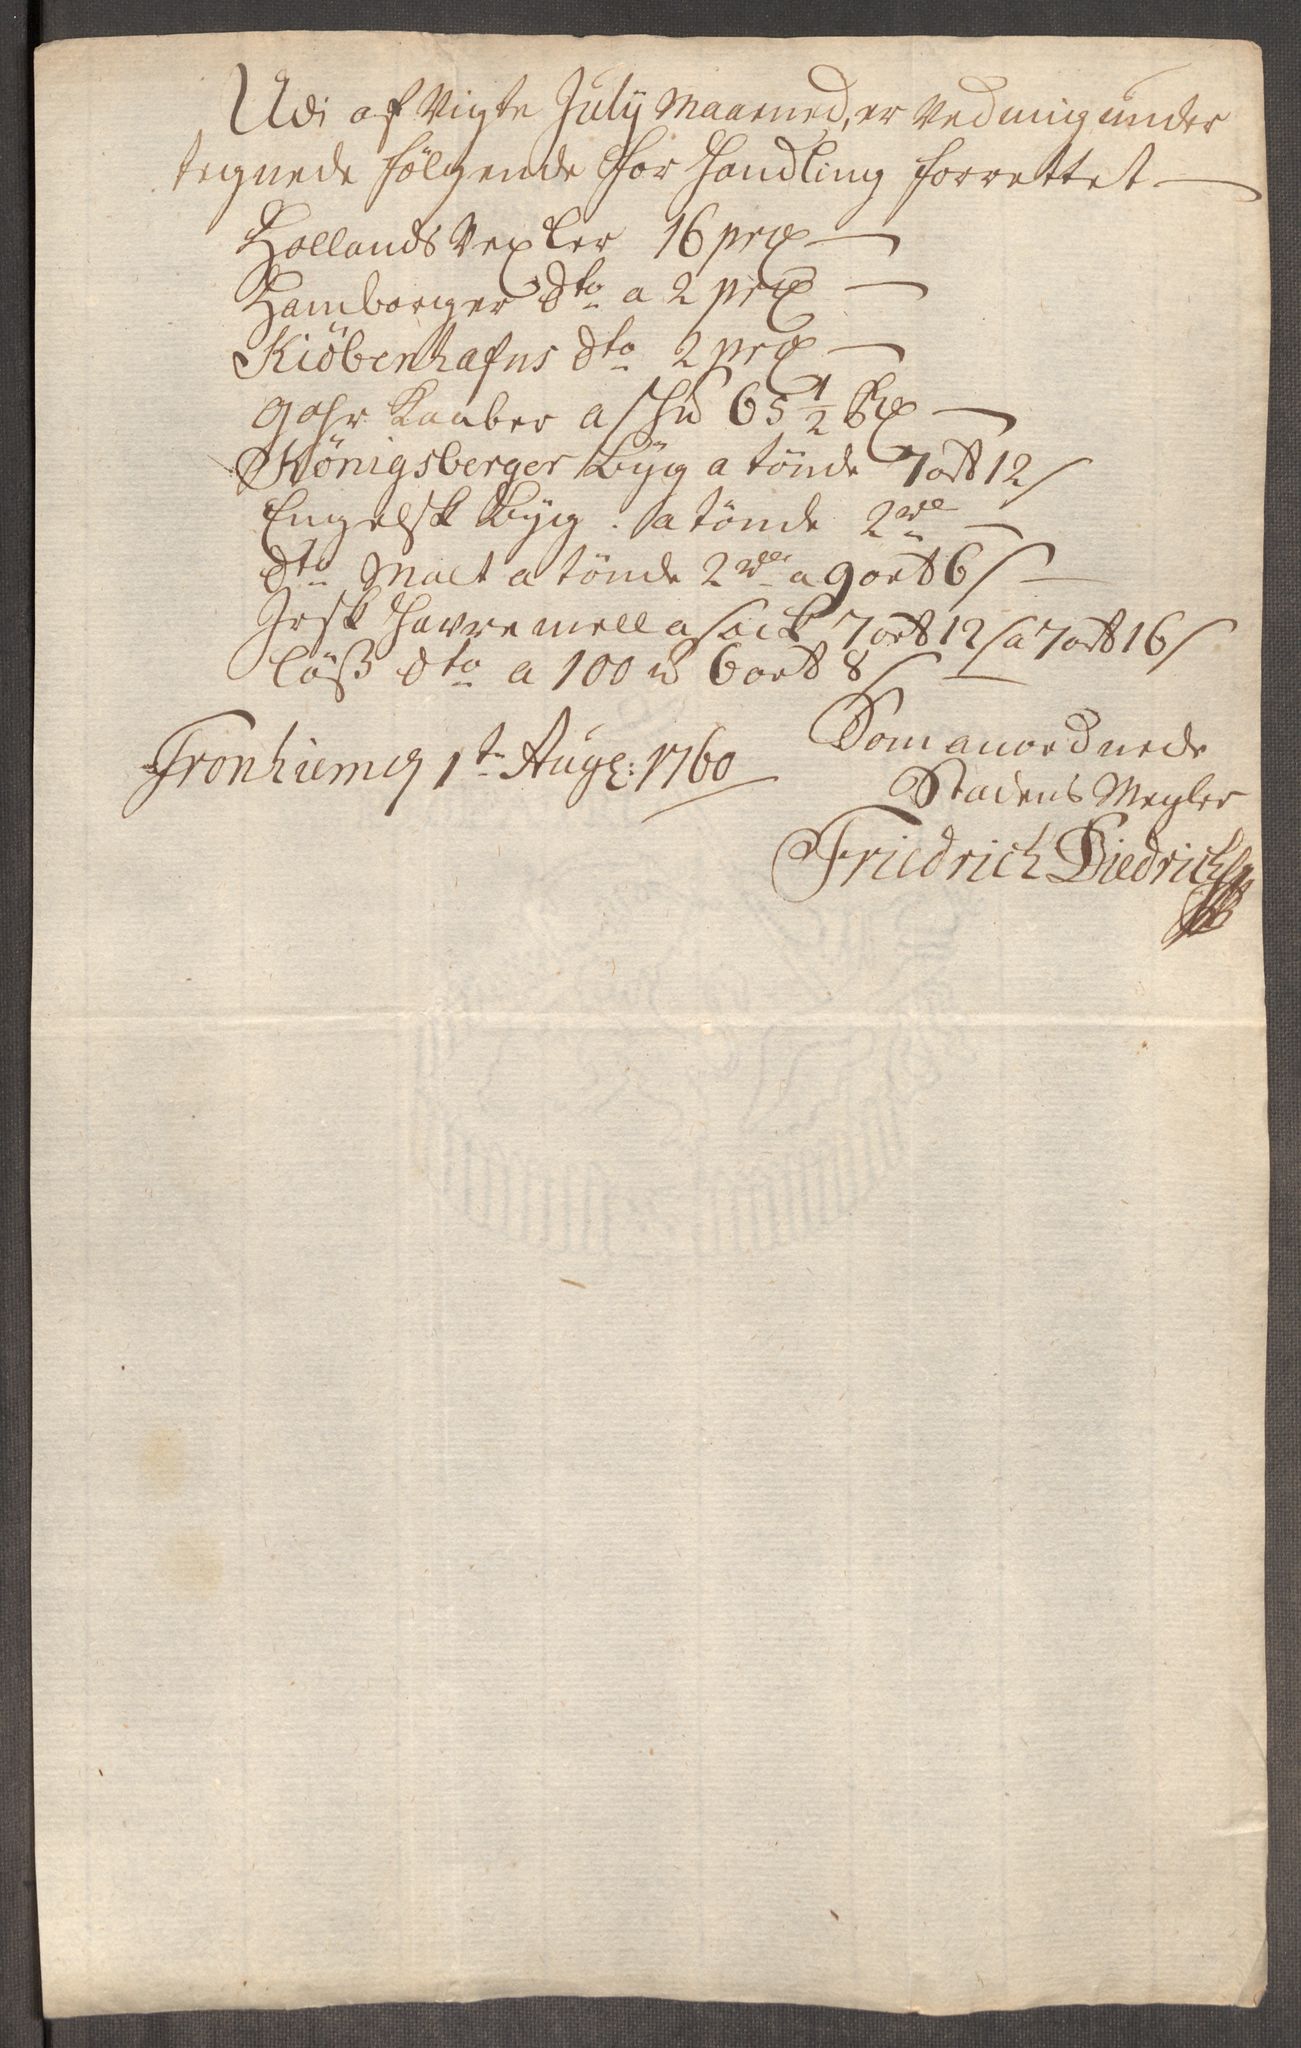 Udi af Vigte July Maaned, er Ved mig under
tegnede fölgende for Handling forrettet
Hollands Vexler 16 pro
Hamborger dto a 2 pro
Kiöbenhafns dto 2 pro
gahr Kaaber a 65 1/2
Königsberger Byg a tönde 7 ort 12 s
Engelsk Byg a tönde 2 rdl
dto Malt a tönde 2 rdlr a 9 ort 6 s
Irsk Havremell a sæck 7 ort 12 s a 7 ort 16 s
löß dto a 100 ℔ 6 ort 8 s
Tronhiem d 1te Augt: 1760
Som anordnede
Stadens Megler
Friedrich Diedrichs